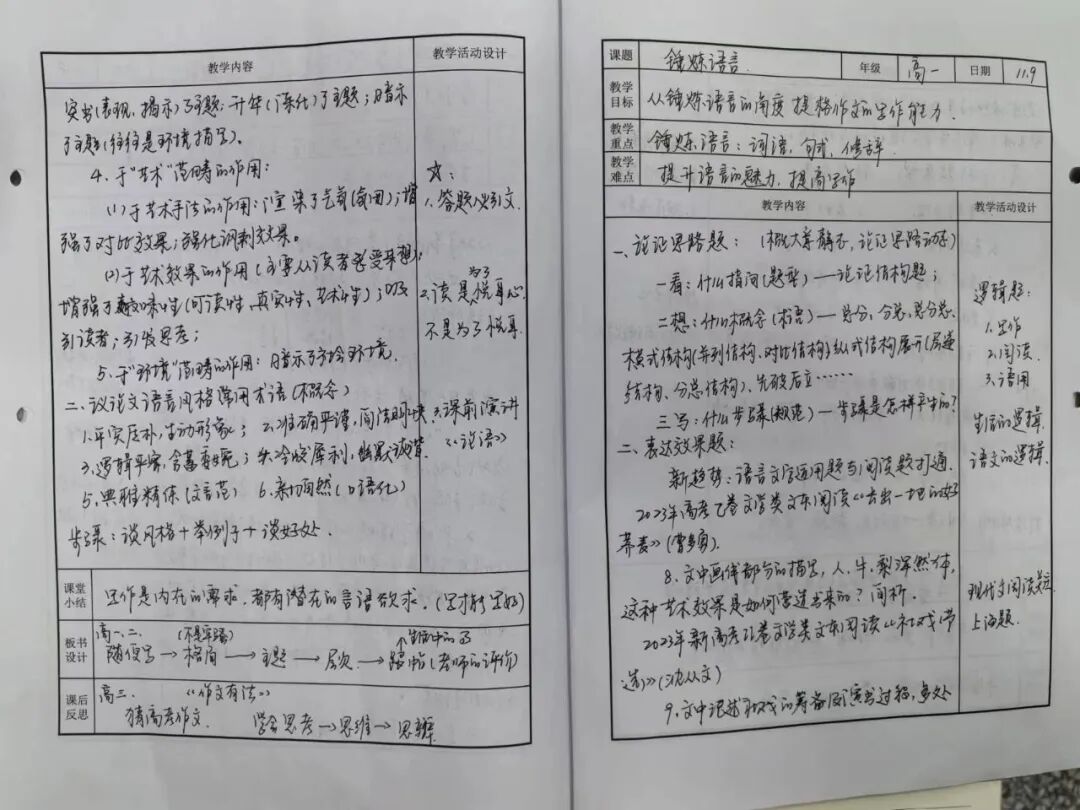 教学内容 教学活动设计
突出(表现、揭示)了主题；升华(深化)了主题；暗示
了主题(往往是环境描写)。
4.于“艺术”范畴的作用：
(1)于艺术手法的作用：渲染了气氛(氛围)；增
强了对比效果；强化讽刺效果。
(2)于艺术效果的作用(主要从读者感受来想)；
增强了趣味性(可读性、真实性、艺术性)；吸
引读者；引发思考；
5.于“环境”范畴的作用：暗示了社会环境.
二、议论文语言风格常用术语(概念)
1.平实质朴,生动形象； 2.准确严谨,简洁明快.
3.逻辑严密,含蓄委婉； 4.冷峻犀利,幽默诙谐.
5.典雅精体(文言范) 6.亲切自然(口语化)
步骤：谈风格+举例子+谈好处.
☆：
1.答题必引文.
2.读是为了悦耳心
不是为了悦耳.
3.课前演讲
《论语》
课堂小结 写作是内在的需求.都有潜在的言语欲求.(写才能写好)
板书设计 高一、二. (不是字数)
随便写→格局→主题→层次→跟帖(老师的评价)
课后反思 高三. 《作文有法》
猜高考作文. 学会思考→思维→思辨.
课题 锤炼语言. 年级 高一 日期 11.9
教学目标 从锤炼语言的角度提格作文的写作能力.
教学重点 锤炼语言：词语、句式、修辞.
教学难点 提升语言的魅力,提高写作
教学内容 教学活动设计
一、论证思路题：(概大纲静态,论证思路动态)
一看：什么指向(题型)—论证结构题；
二想：什么概念(术语)—总分、分总、总分总、
横式结构(并列结构、对比结构)纵式结构展开(层递
结构、分总结构)、先破后立……
三写：什么步骤(规范)—步骤是怎样产生的?
二、表达效果题：
新趋势：语言文字运用题与阅读题打通.
2023年高考乙卷文学类文本阅读《长出一地的好
荞麦》(曹多勇).
8.文中画线部分的描写,人、牛、犁浑然一体,
这种艺术效果是如何营造出来的?简析.
2023年新高考II卷文学类文本阅读《社戏(节
选)》(沈从文)
9.文中记述社戏的筹备及演出过程,多处
逻辑题：
1.写作
2.阅读.
3.语用
生活的逻辑.
语文的逻辑.
上海题.